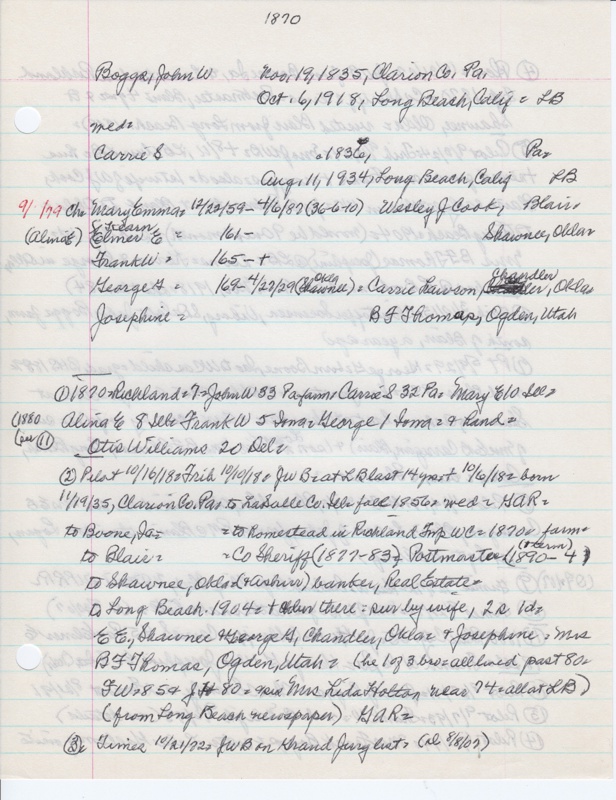 1870
Boggs, John W Nov, 19, 1835, Clarion Co, Pa,
Oct. 6, 1918, Long Beach, Calif = LB
wed=
Carrie S c1836, Pa=
Aug, 11, 1934, Long Beach, Calif LB
9/ 1/79 Ch= Mary Emma= 12/22/59 - 4/6/87 (36-6-10) Wesley J Cook, Blair=
(Alina E) Elmer E = 161- Shawnee, Okla=
& Fearn
Frank W = 165-+
George G = 169- 4/27/29 (Shawnee) = Carrie Lawson, Chandler, Okla=
Okla
Josephine = B F Thomas, Ogden, Utah
(1) 1870=Richland=7=John W 33 Pa farm= Carrie S 32 Pa= Mary E 10 Ill=
(1880 (see (11) Alina E 8 Ill= Frank W 5 Iowa= George 1 Iowa= + hand=
Otis Williams 20 Del=
(2) Pilot 10/16/18= Trib 10/10/18= JWB at LB last 14 yrs + 10/6/18= born
11/19/35, Clarion Co. Pa= to LaSalle Co. Ill= fall 1856= wed= GAR=
to Boone, Ia= =to homestead in Richland Twp WC= 1870= farm=
to Blair= =Co Sheriff (1877-83)= Postmaster (1890-4)
(+ term)
to Shawnee, Okla= banker, Real Estate=
to Long Beach 1904= + there= sur by wife, 2s 1d=
E E, Shawnee & George G, Chandler, Okla= + Josephine= Mrs
B F Thomas, Ogden, Utah= (he 1 of 3 bro= all lived past 80=
FW=85 & JH 80= sis Mrs Lida Holton, near 74= all at LB)
(from Long Beach newspaper) GAR=
(3) Times 10/21/72= JWB on Grand Jury list= (al 8/8/07)